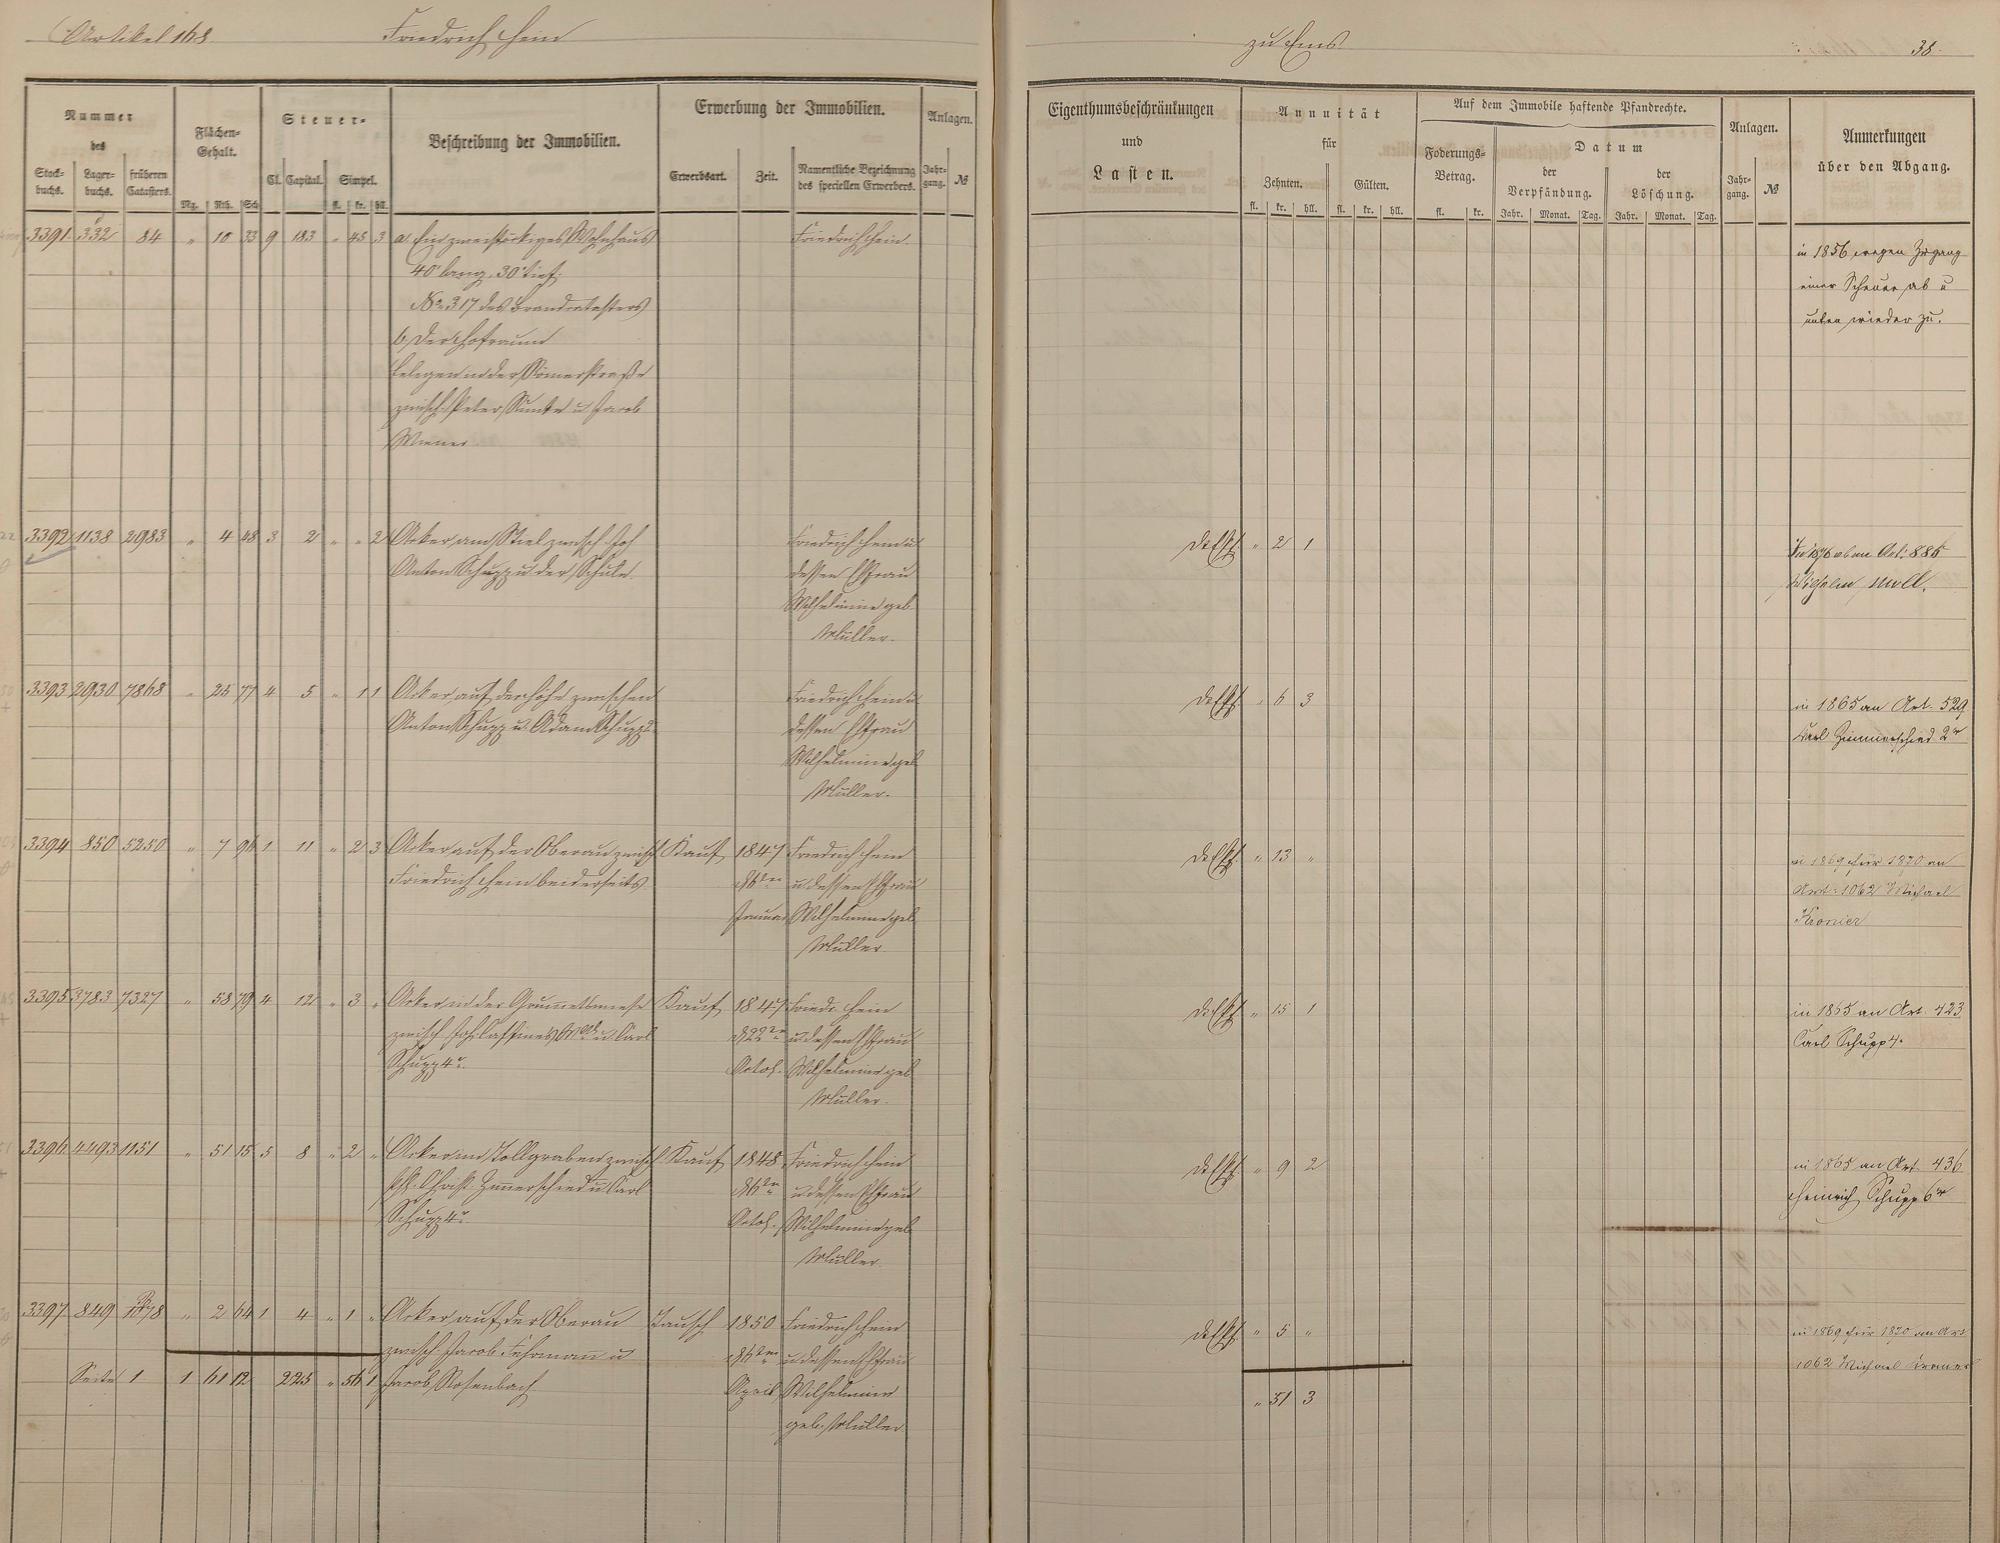 Artikel 168 Friedrich Hein zu Ems 38.
Nummer des
Stock-buchs. Lager-buchs. früheren Catasters.
Flächen-Gehalt.
Mg. Rth. Sch
Steuer-
Cl. Capital. Simpel.
fl. kr. hll.
Beschreibung der Immobilien.
Erwerbung der Immobilien.
Erwerbsart. Zeit. Namentliche Bezeichnung des speciellen Erwerbers.
Anlagen.
Jahr-gang. №
Eigenthumsbeschränkungen
und
Lasten.
Annuität
für
Zehnten. Gülten.
fl. kr. hll. fl. kr. hll.
Auf dem Immobile haftende Pfandrechte.
Foderungs-Betrag.
fl. kr.
Datum
der Verpfändung. der Löschung.
Jahr. Monat. Tag. Jahr. Monat. Tag.
Anlagen.
Jahr-gang. №
Anmerkungen
über den Abgang.
3391 332 84 " 10 33 9 183 " 45 3 a Ein zweistöckiges Wohnhaus Friedrich Hein in 1856 wegen Zugang
40' lang, 30' tief. einer Scheuer ab u
№ 317 des Brandcatasters unten wieder zu.
b, Der Hofraum
belegen in der Römerstraße
zwisch. Peter u Jacob
3392 1138 2983 " 4 48 3 2 " " 2 Acker am zwisch. Joh Friedrich Hein u " 2 1
Anton Schupp u der Schule. dessen Ehfrau Wilhelm
Wilhelmine geb.
Müller.
3393 2930 7868 " 25 77 4 5 " 1 1 Acker auf der Höhe zwischen Friedrich Hein u " 6 3 in 1865 an Art. 529
Anton Schupp u Adam Schupp dessen Ehfrau Carl Zimmerschied 2r
Wilhelmine geb
Müller.
3394 850 5250 " 7 96 1 11 " 2 3 Acker auf der Oberau zwisch Kauf 1847 Friedrich Hein " 13 " in 1869 für 1870 an
Friedrich Hein beiderseits. u dessen Ehfrau Art: 1062 Michael
Januar Wilhelmine geb
Müller.
3395 3783 7327 " 58 79 4 12 " 3 " Acker in der Grummetswiese Kauf 1847 Friedr. Hein " 15 1 in 1865 an Art. 423
zwisch. Joh. u Carl u dessen Ehfrau Carl Schupp 4.
Schupp 4r. Octob. Wilhelmine geb
Müller.
3396 4493 1151 " 51 15 5 8 " 2 " Acker im Tollgraben zwisch. Kauf 1848 Friedrich Hein " 9 2 in 1865 an Art. 436
Christ. Zimmerschied u Carl u dessen Ehfrau Heinrich Schupp 6r
Schupp 4r. Octob. Wilhelmine geb
Müller.
3397 849 " 2 64 1 4 " 1 " Acker auf der Oberau Tausch 1850 Friedrich Hein " 5 " in 1869 für 1870 an Art
zwisch. Jacob Fuhrmann u u dessen Ehfrau 1062 Michael
Seite 1 1 61 12 225 " 56 1 Jacob Rosenbach. April Wilhelmine " 51 3
geb. Müller